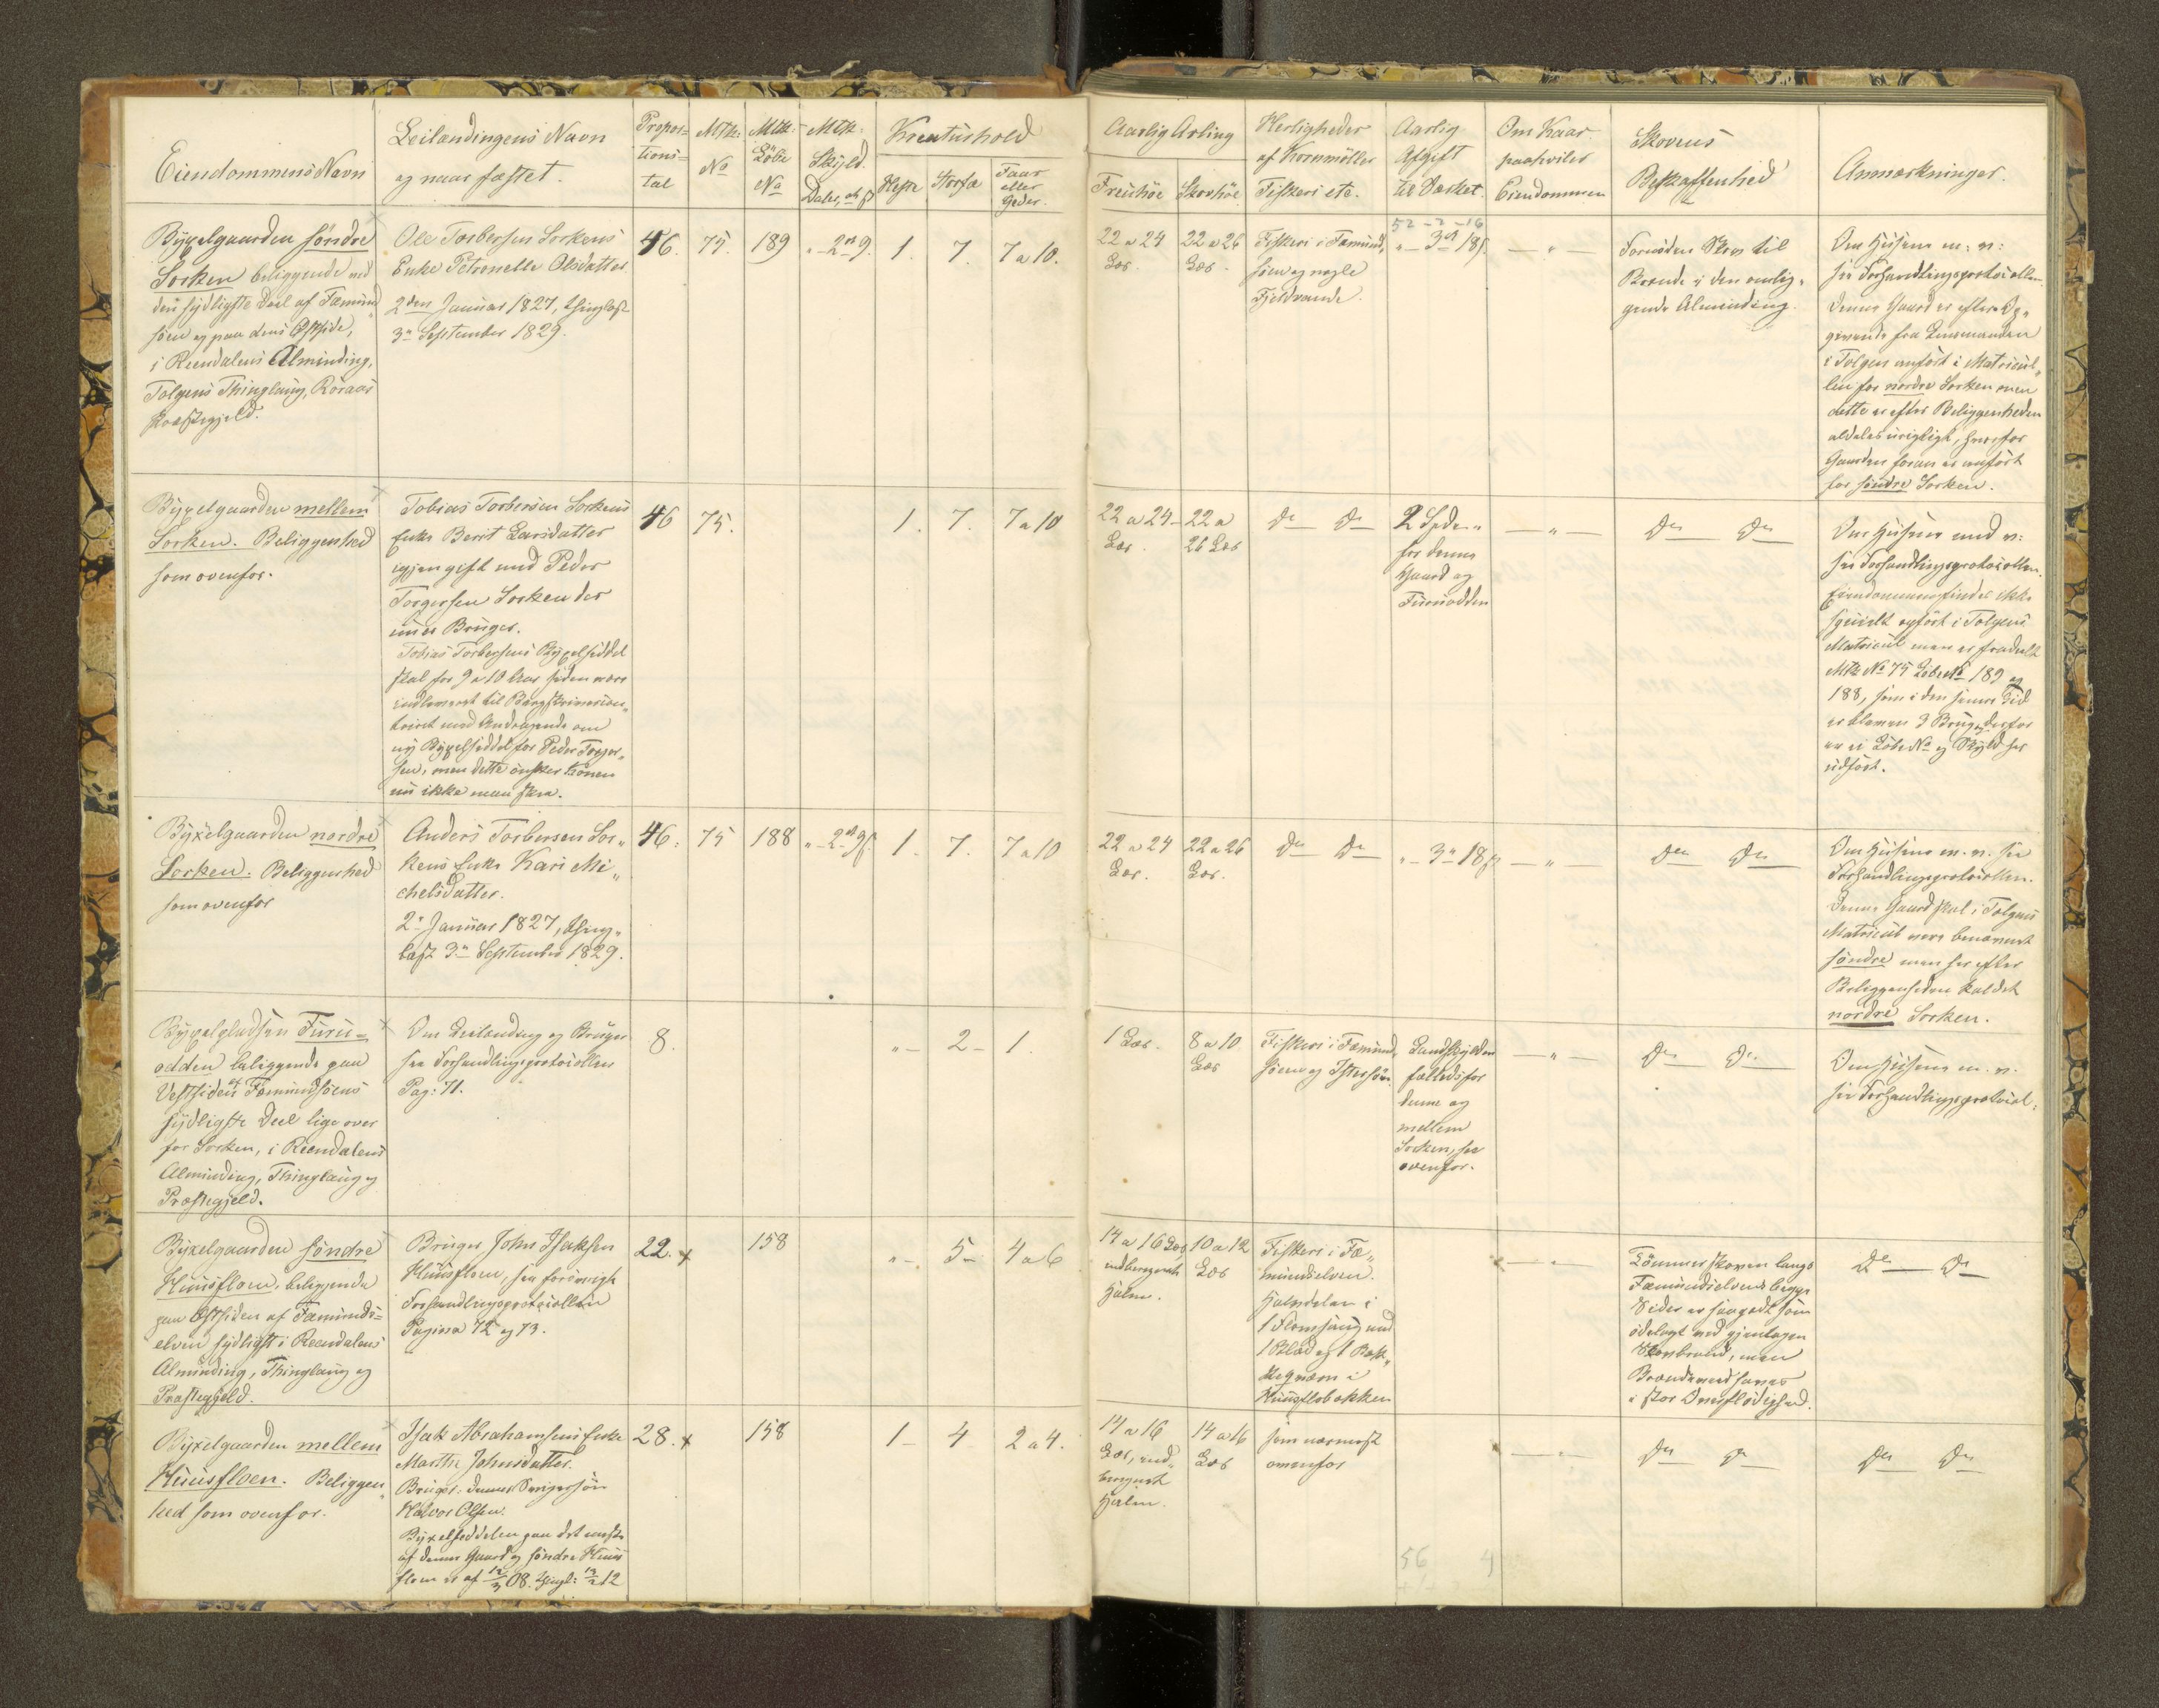 Eiendommens Navn
Leilændingens Navn
og naar fæstet.
Propor=
tions=
tal
Mtk:
No
Mtk:
Löbe
No
Mtk:
Skyld.
Daler, ort ß
Kreaturhold
Heste
Storfæ
Faar
eller
Geder.
Aarlig Avling
Freuhöe
Skovhöe
Herligheder
af Kornmöller
Fiskeri etc.
Aarlig
Afgift
til Værket.
Om Kaar
paahviler
Eiendommen
Skovens
Beskaffenhed
Anmærkninger.
Byxelgaarden söndre
Sorken beliggende ved
den sydligste Deel af Fæmund=
söen og paa dens Østside,
i Reendalens Alminding,
Tolgens Thinglaug, Röraas
Præstegjeld.
Ole Torbersen Sorkens
Enke Petronelle Olsdatter
2den Januar 1827, thinglæst
3die September 1829.
46.
75.
189
" - 2 ort 9.
1.
7.
7 a 10.
22 a 24
Læs.
22 a 26
Læs.
Fiskeri i Fæmund,
söen og nogle
Fjeldvande.
52 - 2 - 16
" - 3 ort 18 ß.
— " —
Fornöden Skov til
Brænde i den omlig=
gende Alminding.
Om Husene m: v:
see Forhandlingsprotocollen.
Denne Gaard er efter Op=
givende fra Lensmanden
i Tolgen anfört i Matricul=
len for nordre Sorken men
dette er efter Beliggenheden
aldeles urigtigt, hvorfor
Gaarden foran er anfört
for söndre Sorken.
Byxelgaarden mellem
Sorken. Beliggenhed
som ovenfor.
Tobias Torbersen Sorkens
Enke Berit Larsdatter
igjen gift med Peder
Torgersen Sorken der
nu er Bruger.
Tobias Torbersens Byxelseddel
skal for 9 a 10 Aar siden være
indleveret til Bergskrivercon=
toiret med Andragende om
ny Byxelseddel for Peder Torger=
sen, men dette önsker Konen
nu ikke maa skee.
46
75.
1.
7.
7 a 10
22 a 24
Læs.
22 a
26 Læs
Do Do
2 Spdr.
for denne
Gaard og
Furuodden
— " —
Do Do
Om Husene med v:
see Forhandlingsprotocollen.
Eiendommen findes ikke
specielt opfört i Tolgens
Matricul men er fradeelt
Mtk No 75 Löbe No 189 og
188, som i den senere Tid
er bleven 3 Brug, derfor
er ei Löbe No og Skyld her
udfört.
Byxelgaarden nordre
Sorken. Beliggenhed
som ovenfor
Anders Torbersen Sor=
kens Enke Kari Mi=
chelsdatter.
2den Januar 1827, thing=
læst 3die September 1829.
46.
75
188
" - 2 ort 9 ß.
1.
7.
7 a 10
22 a 24
Læs.
22 a 26
Læs.
Do Do
" - 3 ort 18 ß
— " —
Do Do
Om Husene m. v. see
Forhandlingsprotocollen.
Denne Gaard skal i Tolgens
Matricul være benævnt
söndre men her efter
Beliggenheden kaldet
nordre Sorken.
Byxelpladsen Furu=
odden beliggende paa
Vestsiden af Fæmundsöens
sydligste Deel lige over
for Sorken, i Reendalens
Alminding, Thinglaug og
Præstegjeld.
Om Leilænding og Bruger
see Forhandlingsprotocollen
Pag: 71.
8.
" -
2 -
1.
1 Læs.
8 a 10
Læs
Fiskeri i Fæmund,
söen og Istersöen.
Landskylden
fælleds for
denne og
mellem
Sorken, see
ovenfor.
— " —
Do Do
Om Husene m. v.
see Forhandlingsprotocol:
Byxelgaarden söndre
Huusfloen, beliggende
paa Østsiden af Fæmunds=
elven sydligst i Reendalens
Alminding, Thinglaug og
Præstegjeld.
Bruger John Isaksen
Huusfloen, see forövrigt
Forhandlingsprotocollen
Pagina 72 og 73.
22.
158
" -
5 -
4 a 6
14 a 16 Læs,
indberegnet
Halm.
10 a 12
Læs
Fiskeri i Fæ=
mundselven.
Halvdelen i
1 Flomsaug med
1 Blad og 1 Bæk=
keqværn i
Huusflobækken
— " —
Tömmerskoven langs
Fæmundselvens begge
Sider er saagodt som
ödelagt ved gjentagen
Skovbrand, men
Brændeved haves
i stor Overflödighed.
Do Do
Byxelgaarden mellem
Huusfloen. Beliggen=
hed som ovenfor.
Isak Abrahamsens Enke
Marthe Johnsdatter.
Bruger: dennes Svigersön
Halvor Olsen.
Byxelseddelen paa det meste
af denne Gaard og söndre Huus
floen er af 12/3 08. Thingl: 13/2 12
28.
158
1 -
4
2 a 4.
14 a 16
Læs, ind=
beregnet
Halm.
14 a 16
Læs
som nærmest
ovenfor
— " —
Do Do
Do Do
56